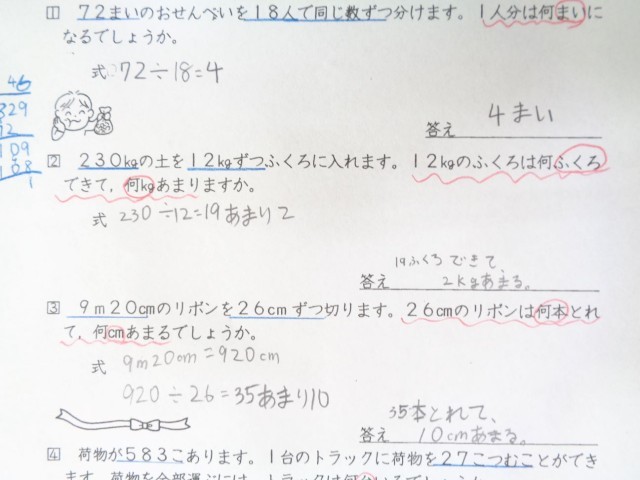 1 72まいのおせんべいを18人で同じ数ずつ分けます。1人分は何まいに
なるでしょうか。
式 72÷18=4
46
329
12
109
108
1
4まい
答え
2 230kgの土を12kgずつふくろに入れます。12kgのふくろは何ふくろ
できて,何kgあまりますか。
式 230÷12=19あまり2
19ふくろできて、
答え 2kgあまる。
3 9m20cmのリボンを26cmずつ切ります。26cmのリボンは何本とれ
て,何cmあまるでしょうか。
式 9m20cm=920cm
920÷26=35あまり10
35本とれて、
答え 10cmあまる。
4 荷物が583こあります。1台のトラックに荷物を27こつむことができ
ます。荷物を全部運ぶには,トラックは何台いるでしょうか。